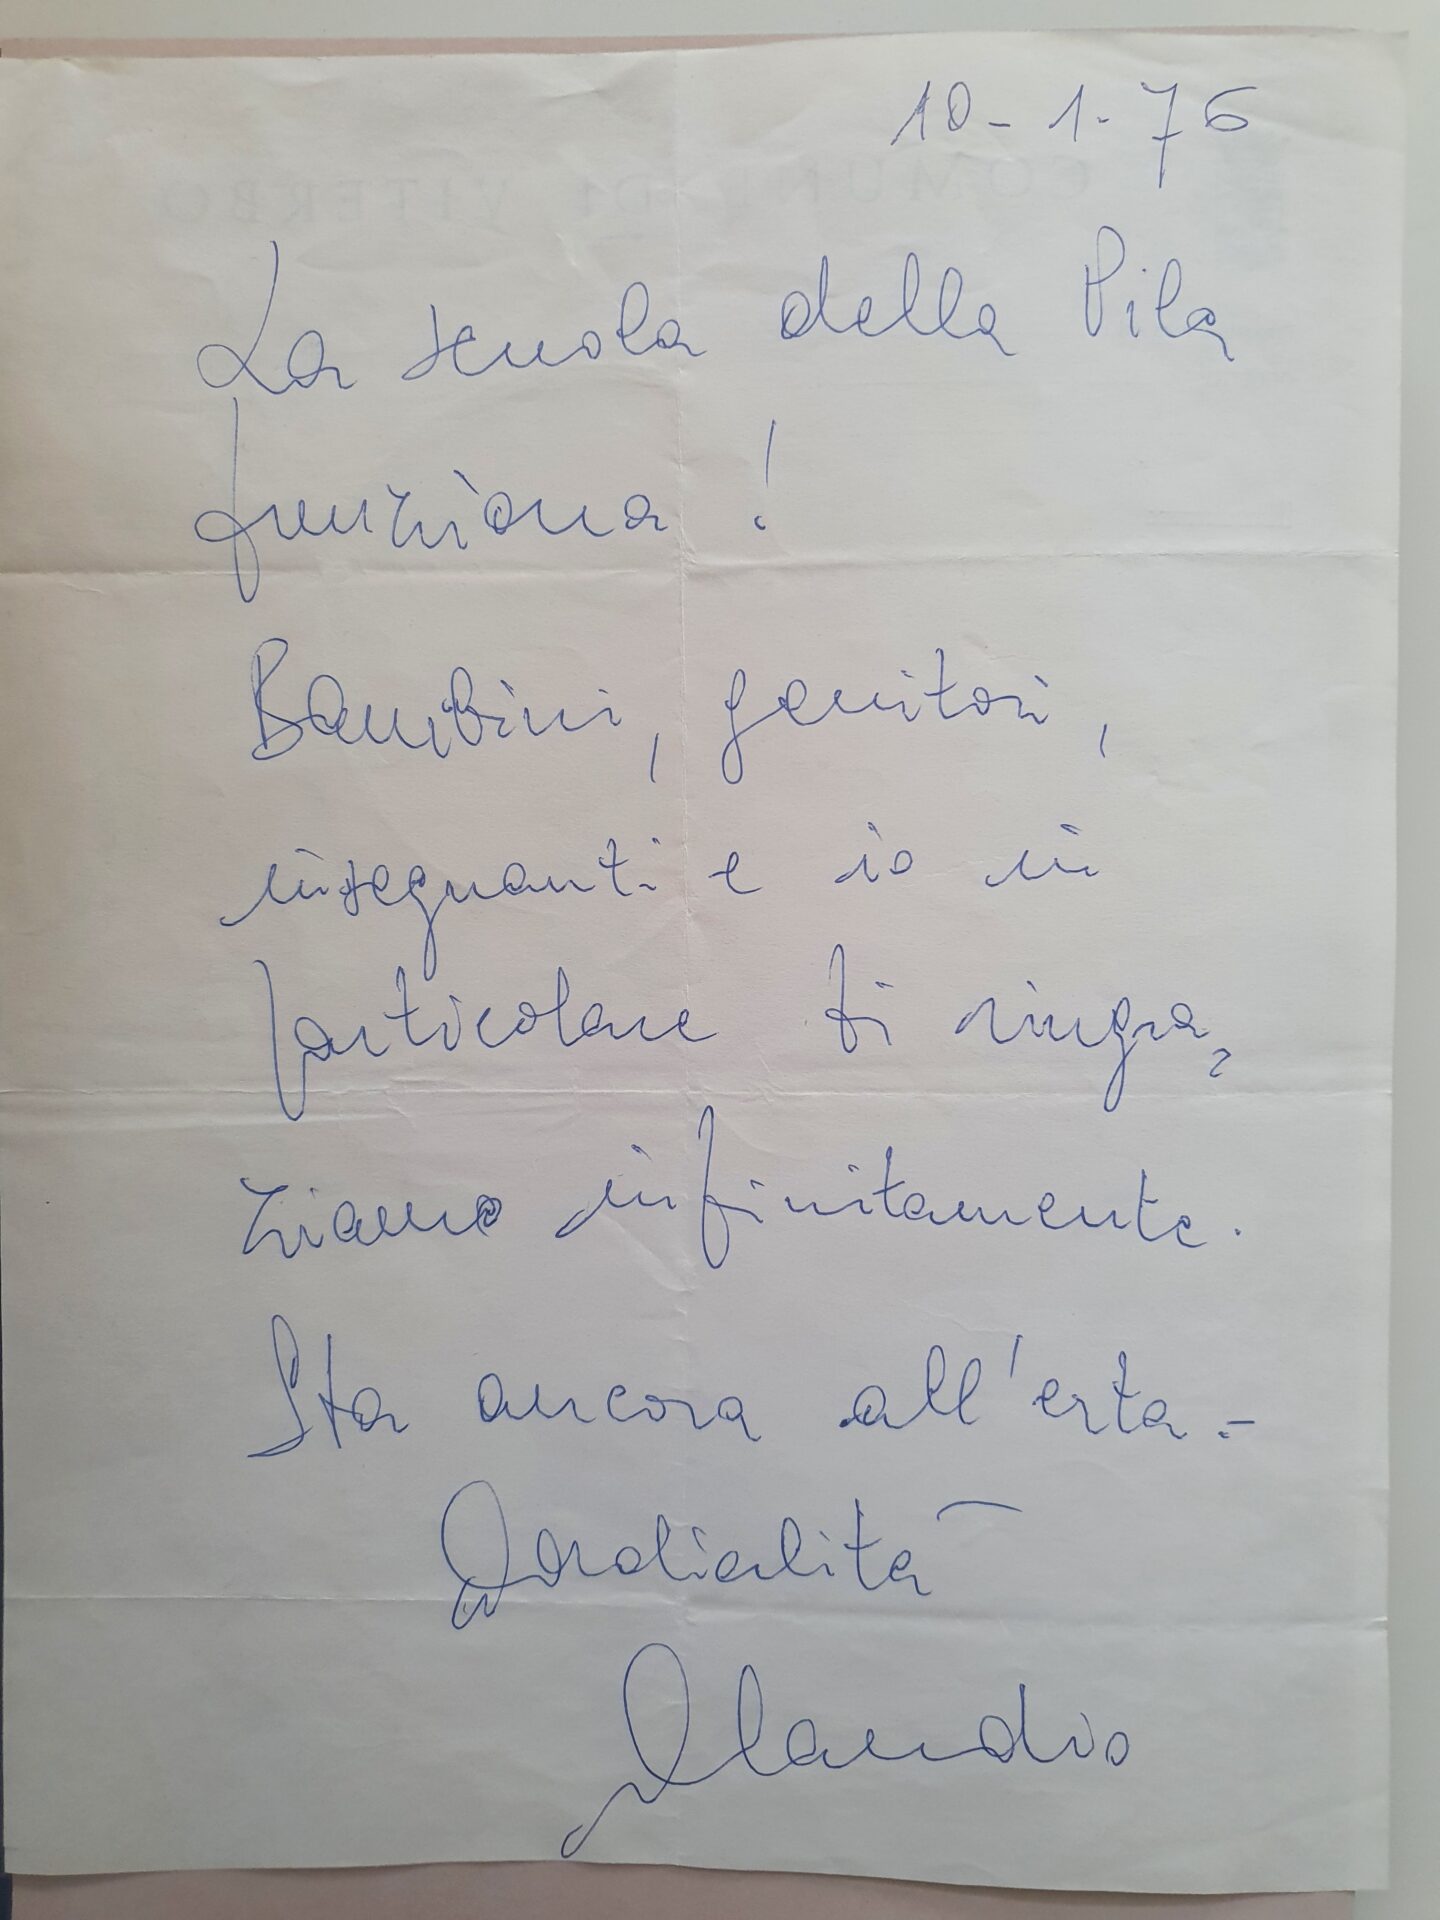 10-1-76
COMUNE DI VITERBO
La scuola della Pila
funziona!
Bambini, genitori,
insegnanti e io in
particolare ti ringra,
ziamo infinitamente.
Sta ancora all'erta.-
Cordialità
Claudio